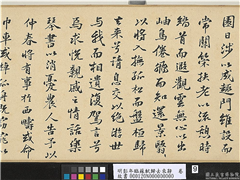 園日涉以成趣門雖設而
常關策扶老以流憩時
矯首而遐觀雲無心以出
岫鳥倦飛而知還景翳翳
以將入撫孤松而盤桓歸
去來兮請息交以絕游世
與我而相遺復駕言兮
焉求悅親戚之情話樂
琴書以消憂農人告予以
仲春將有事於西疇或命
巾車或棹孤舟既窈
國立故宮博物院